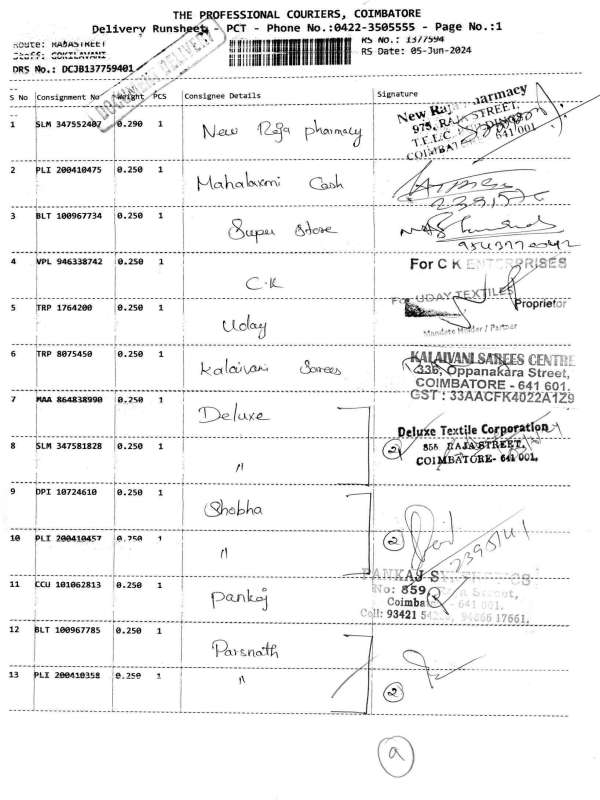 THE PROFESSIONAL COURIERS, COIMBATORE
Delivery Runsheet - PCT - Phone No.:0422-3505555 - Page No.:1
Route: RAJASTREET
RS No.: 1377594
Staff: GOKILAVANI
RS Date: 05-Jun-2024
DRS No.: DCJB137759401
S No Consignment No Weight PCS Consignee Details Signature
1 SLM 347552407 0.290 1 New Raja pharmacy
New Raja Pharmacy
975, RAJA STREET,
COIMBATORE 641 001
2 PLI 200410475 0.250 1 Mahalaxmi Cash
3 BLT 100967734 0.250 1 Super Store
4 VPL 946338742 0.250 1 C.K
For C K ENTERPRISES
Proprietor
5 TRP 1764200 0.250 1 Uday
For UDAY TEXTILES
Mandate Holder / Partner
6 TRP 8075450 0.250 1 Kalaivani Sarees
KALAIVANI SAREES CENTRE
336, Oppanakara Street,
COIMBATORE - 641 601.
GST : 33AACFK4022A1Z9
7 MAA 864838990 0.250 1 Deluxe
Deluxe Textile Corporation
855 RAJA STREET,
COIMBATORE- 641 001.
8 SLM 347581828 0.250 1 "
2
9 DPI 10724610 0.250 1 Shobha
10 PLI 200410457 0.250 1 "
2
11 CCU 101062813 0.250 1 Pankaj
PANKAJ
No: 859, Street,
Coimba - 641 001.
Cell: 93421 17661.
12 BLT 100967785 0.250 1 Parsnath
13 PLI 200410358 0.250 1 "
2